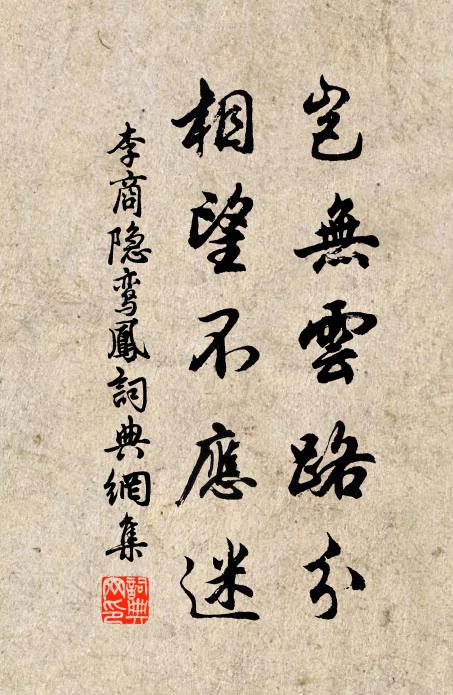 豈無雲路分
相望不應迷
李商隐鸾鳳詞典網集
詞典
网印